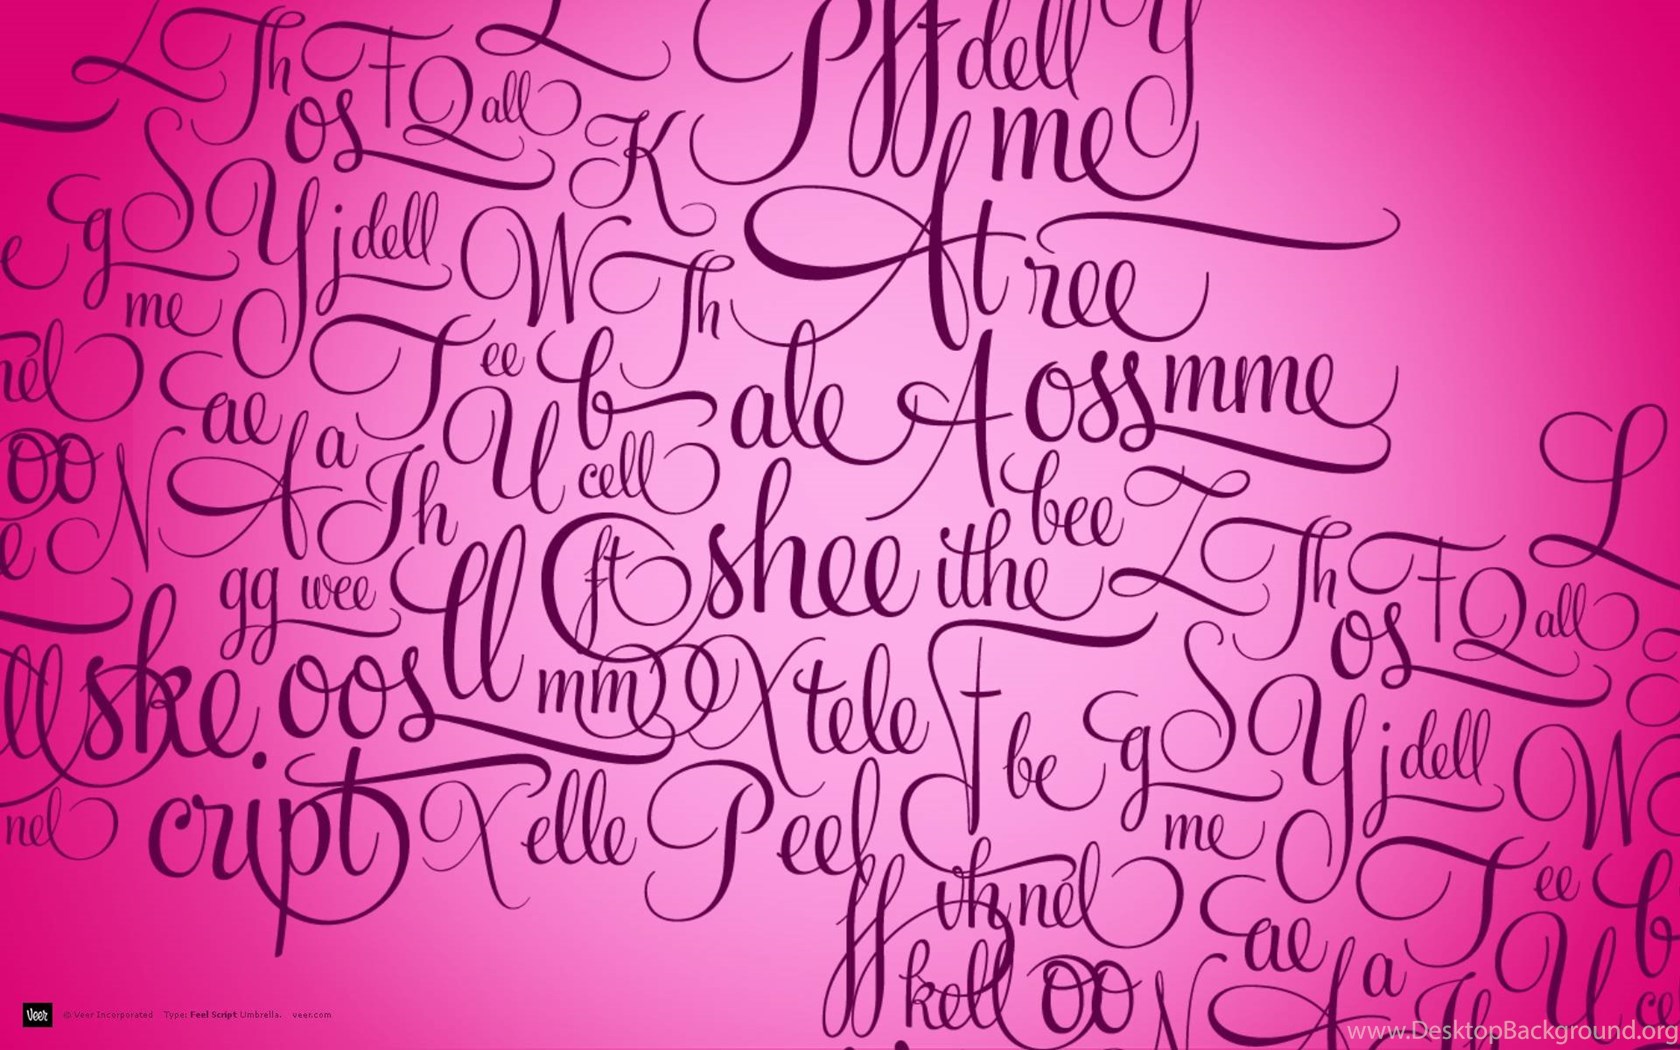 L Th F Q all L P ff dell Y
os K me
g S Y j dell W Th At ree
e me
nel ae T ee b ale A oss mme L
oo N A a Th U cell bee Z Th F Q all
e gg wee ll ft shee ithe os
ll ske. oos mm X tele F be g S Y j dell W
nel cript X elle P eel me
ff th nel ae T ee b
kell oo N A a Th U ce
Veer © Veer Incorporated Type: Feel Script Umbrella. veer.com
www.DesktopBackground.org